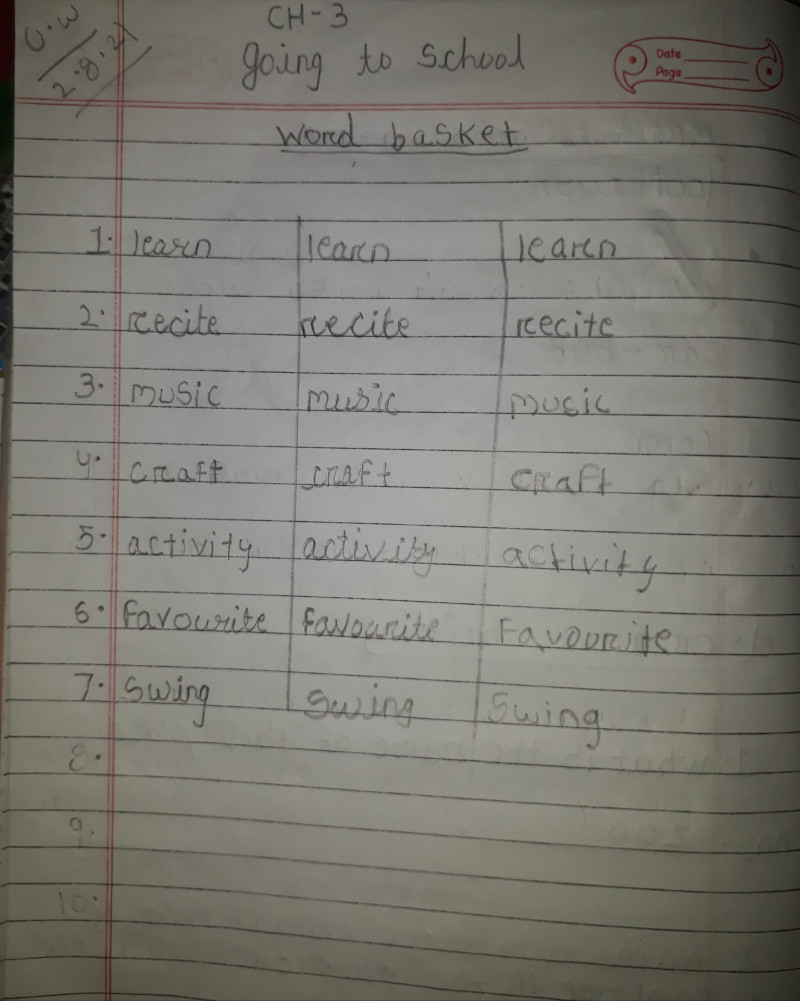 C.W
2.8.21
CH-3
going to School
Date
Page
Word basket
1. learn learn learn
2. recite recite recite
3. music music music
4. craft craft craft
5. activity activity activity
6. favourite favourite Favourite
7. Swing Swing Swing
8.
9.
10.